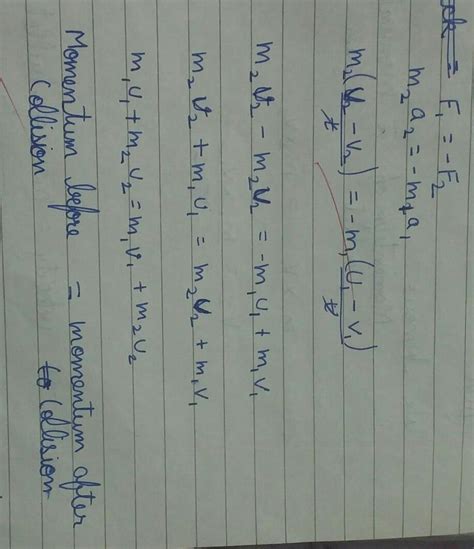 F₁ = -F₂
m₂ a₂ = -m₁ a₁
m₂ (v₂ - v₂) / t = -m₁ (u₁ - v₁) / t
m₂ v₂ - m₂ v₂ = -m₁ u₁ + m₁ v₁
m₂ v₂ + m₁ u₁ = m₂ v₂ + m₁ v₁
m₁ u₁ + m₂ u₂ = m₁ v₁ + m₂ v₂
Momentum before = momentum after
Collision to Collision